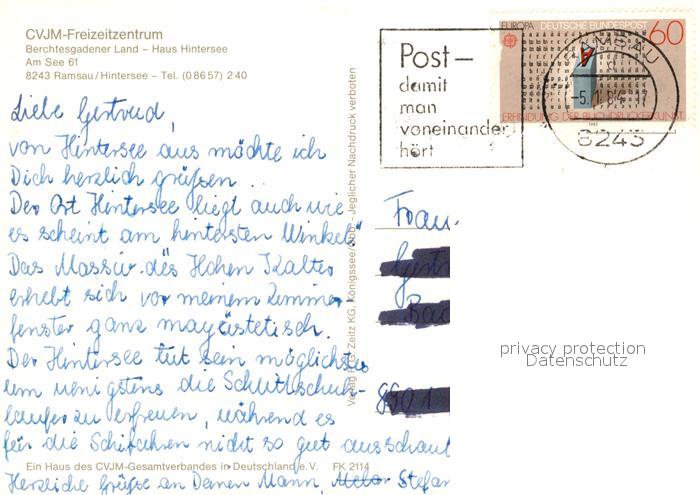 CVJM-Freizeitzentrum
Berchtesgadener Land – Haus Hintersee
Am See 61
8243 Ramsau/Hintersee – Tel. (08657) 240
EUROPA DEUTSCHE BUNDESPOST 60
ERFINDUNG DER BUCHDRUCKERKUNST
Post –
damit
man
voneinander
hört
RAMSAU
-5.1.84-17
8243
Liebe Gertrud,
von Hintersee aus möchte ich
Dich herzlich grüßen.
Der Ort Hintersee liegt auch wie
es scheint am hintersten Winkel."
Das Massiv des Hohen Kalter
erhebt sich vor meinem Zimmer-
fenster ganz majestetisch.
Der Hintersee tut sein möglichstes
um wenigstens die Schlittschuh-
laufer zu erfreuen, während es
für die Schifahren nicht so gut ausschaut
Herzliche Grüße an Deinen Mann, Stefan
Frau
8901
Jeglicher Nachdruck verboten
Ein Haus des CVJM-Gesamtverbandes in Deutschland e.V. FK 2114
privacy protection
Datenschutz